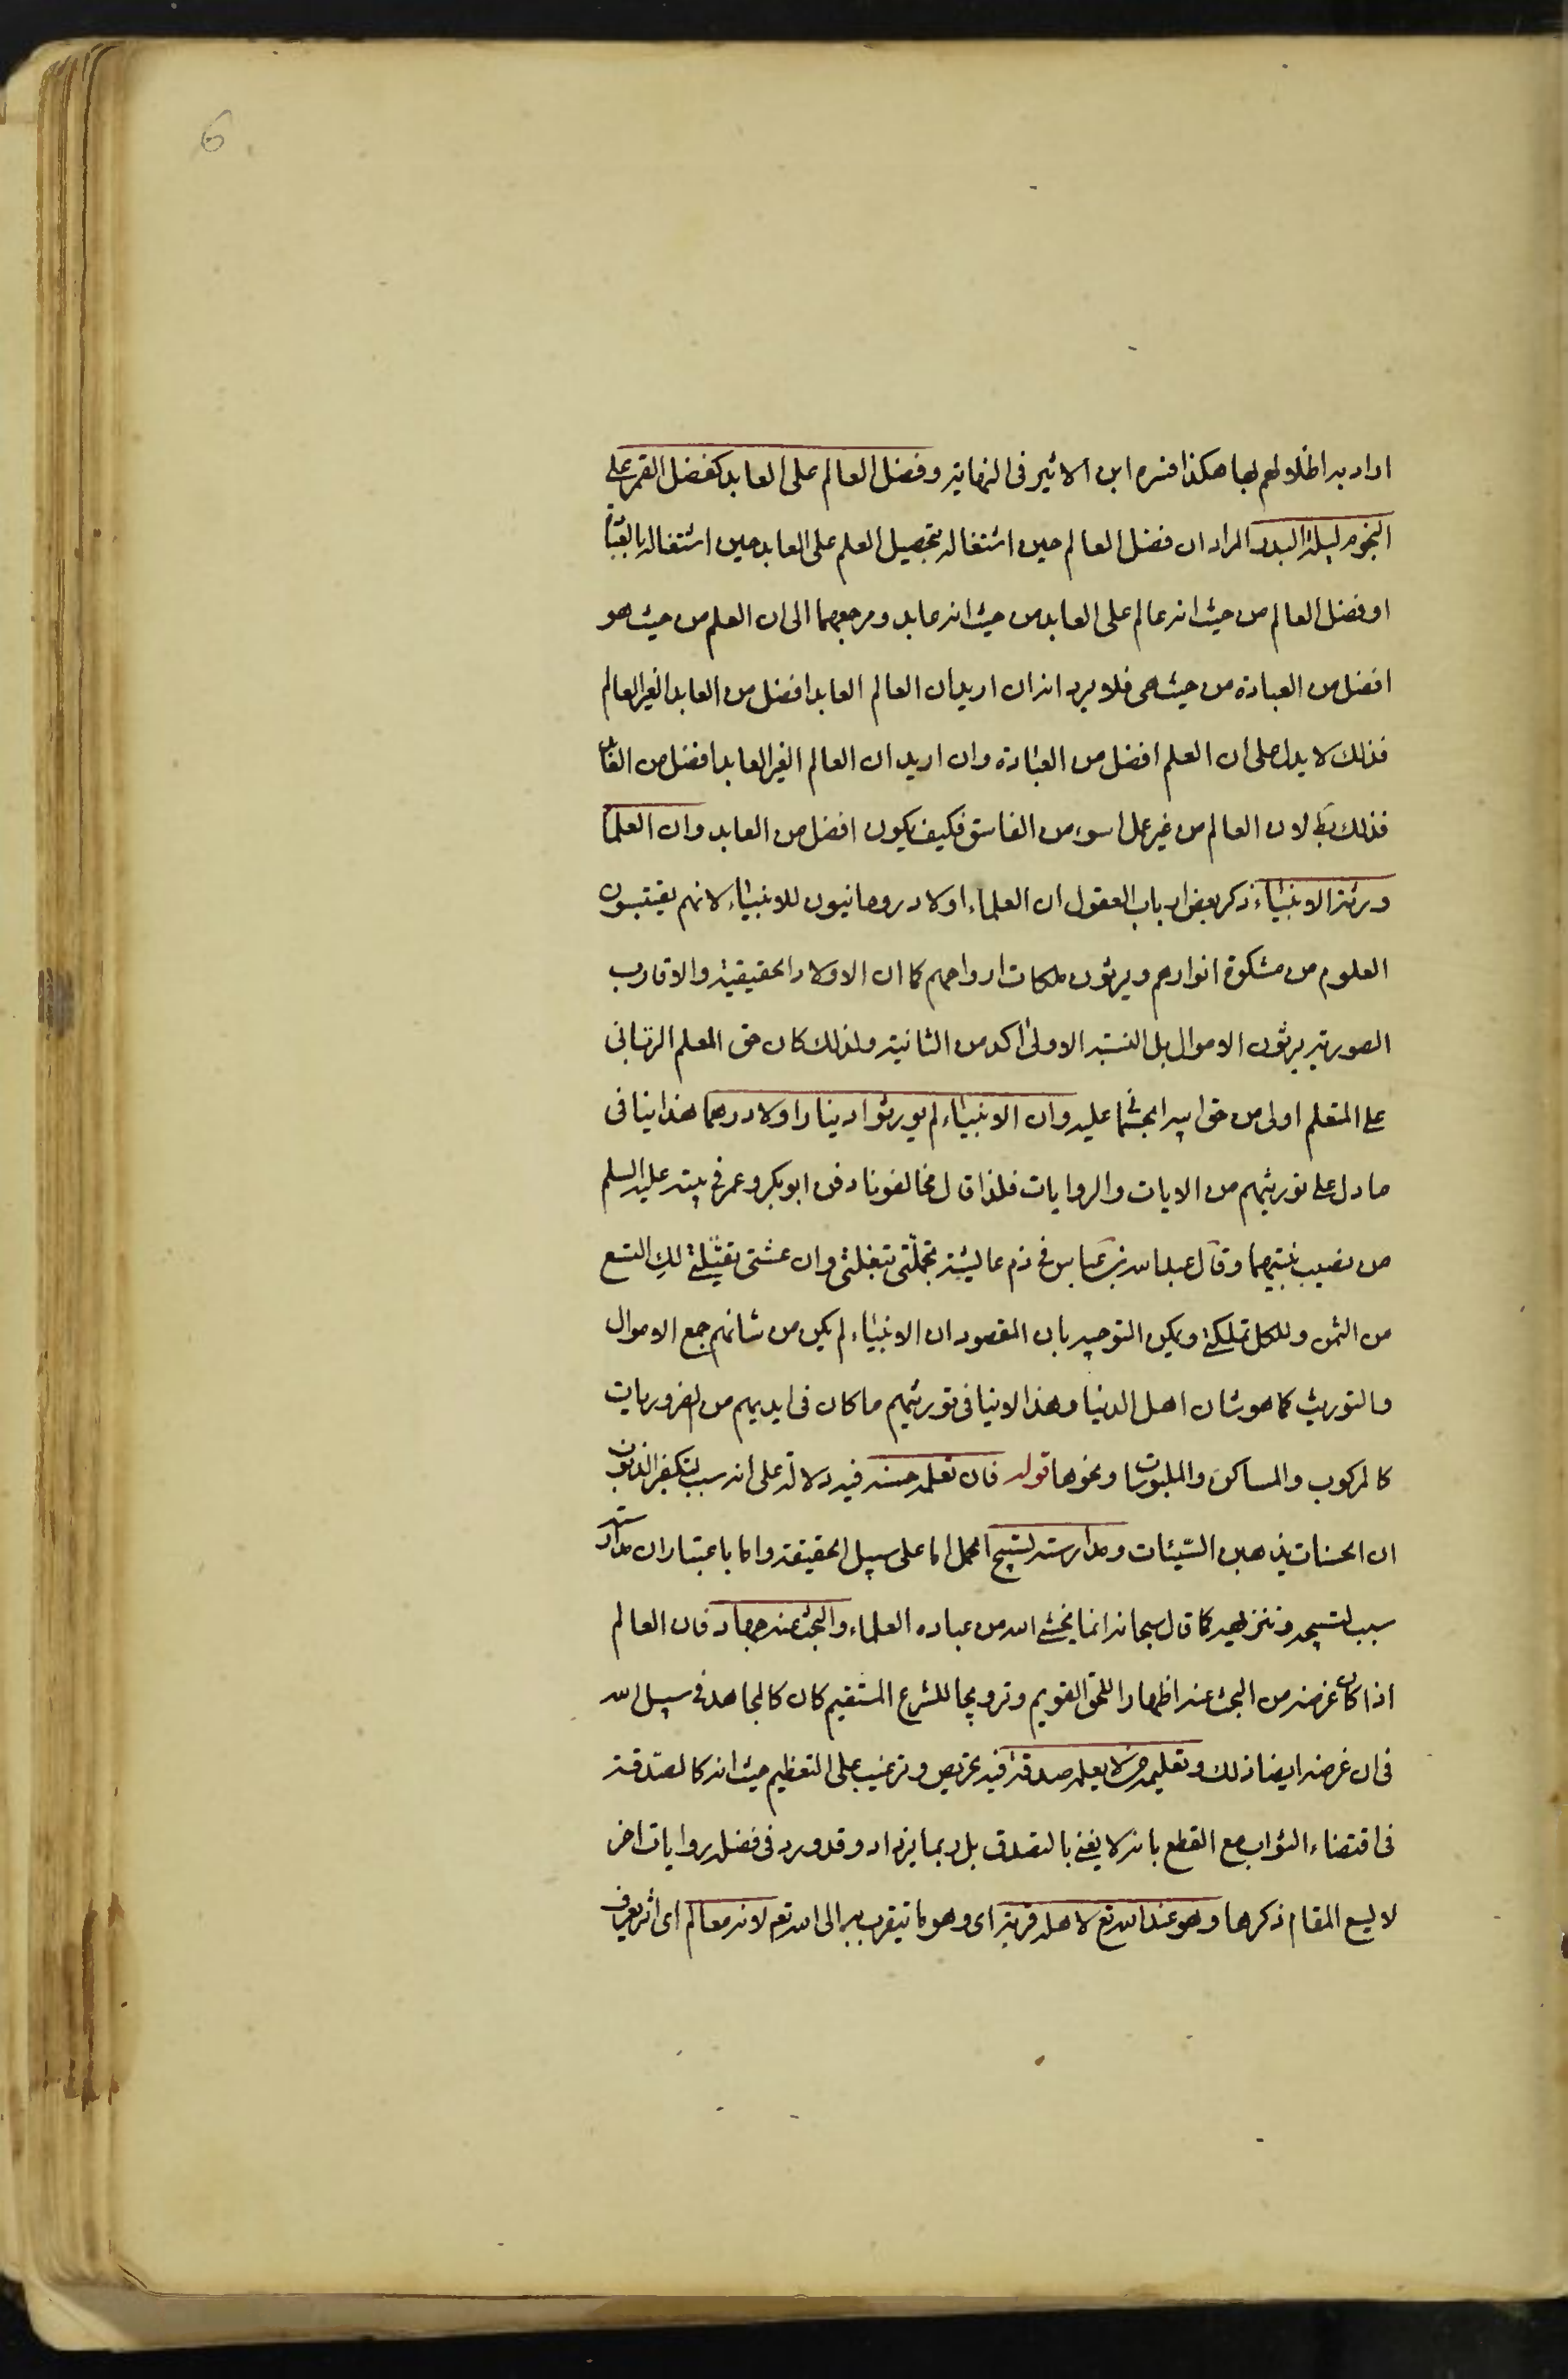 6
اراد به اظلالهم بها هكذا فسره ابن الاثير فى النهاية وفضل العالم على العابد كفضل القمر على
النجوم ليلة البدر المراد ان فضل العالم حين اشتغاله بتحصيل العلم على العابد حين اشتغاله بالعبادة
او فضل العالم من حيث انه عالم على العابد من حيث انه عابد ومرجعهما الى ان العلم من حيث هو
افضل من العبادة من حيث هى فلا يرد انه ان اريد ان العالم العابد افضل من العابد الغير العالم
فذلك لا يدل على ان العلم افضل من العبادة وان اريد ان العالم الغير العابد افضل من العابد
فذلك بط لان العالم من غير عمل اسوء من الفاسق فكيف يكون افضل من العابد وان العلما
ورثة الانبياء ذكر بعض ارباب العقول ان العلماء اولاد روحانيون للانبياء لانهم يقتبسون
العلوم من مشكوة انوارهم ويرثون ملكات ارواحهم كما ان الاولاد الحقيقية والاقارب
الصورية يرثون الاموال بل النسبة الاولى اكد من الثانية ولذلك كان حق المعلم الربانى
على المتعلم اولى من حق ابيه الجسمانى عليه وان الانبياء لم يورثوا دينارا ولا درهما هذا ينافى
ما دل على توريثهم من الايات والروايات فلذا قال مخالفونا دفن ابو بكر وعمر فى بيته عليه السلم
من نصيب بنتيهما وقال عبد الله بن عباس فى ذم عايشة تجملتى تبغلتى وان عشتى تفيلتى لك التسع
من الثمن وللكل تملكتى ويمكن التوجيه بان المقصود ان الانبياء لم يكن من شانهم جمع الاموال
والتوريث كما هو شان اهل الدنيا وهذا لا ينافى توريثهم ما كان فى ايديهم من الضروريات
كالمركوب والمساكن والملبوسات ونحوها قوله فان تعلمه حسنة فيه دلالة على انه سبب لتكفير الذنوب
ان الحسنات يذهبن السيئات ومدارسته تسبيح الحمل اما على سبيل الحقيقة واما باعتبار ان مدارسته
سبب لتسبيحه وتنزيهه كما قال سبحانه انما يخشى الله من عباده العلماء والبحث عنه جهاد فان العالم
اذا كان غرضه من البحث عنه اظهارا للحق القويم وترويجا للشرع المستقيم كان كالمجاهد فى سبيل الله
فى ان غرضه ايضا ذلك وتعليمه من لا يعلمه صدقة فيه تحريص وترغيب على التعظيم حيث انه كالصدقة
فى اقتضاء الثواب مع القطع بانه لا يفنى بالتصدق بل ربما يزداد وقد ورد فى فضله روايات اخر
لا يسع المقام ذكرها وهو عند الله تع لاهله قربة اى وهو ما يتقرب به الى الله تعه لانه معالم اى اثر يعرف